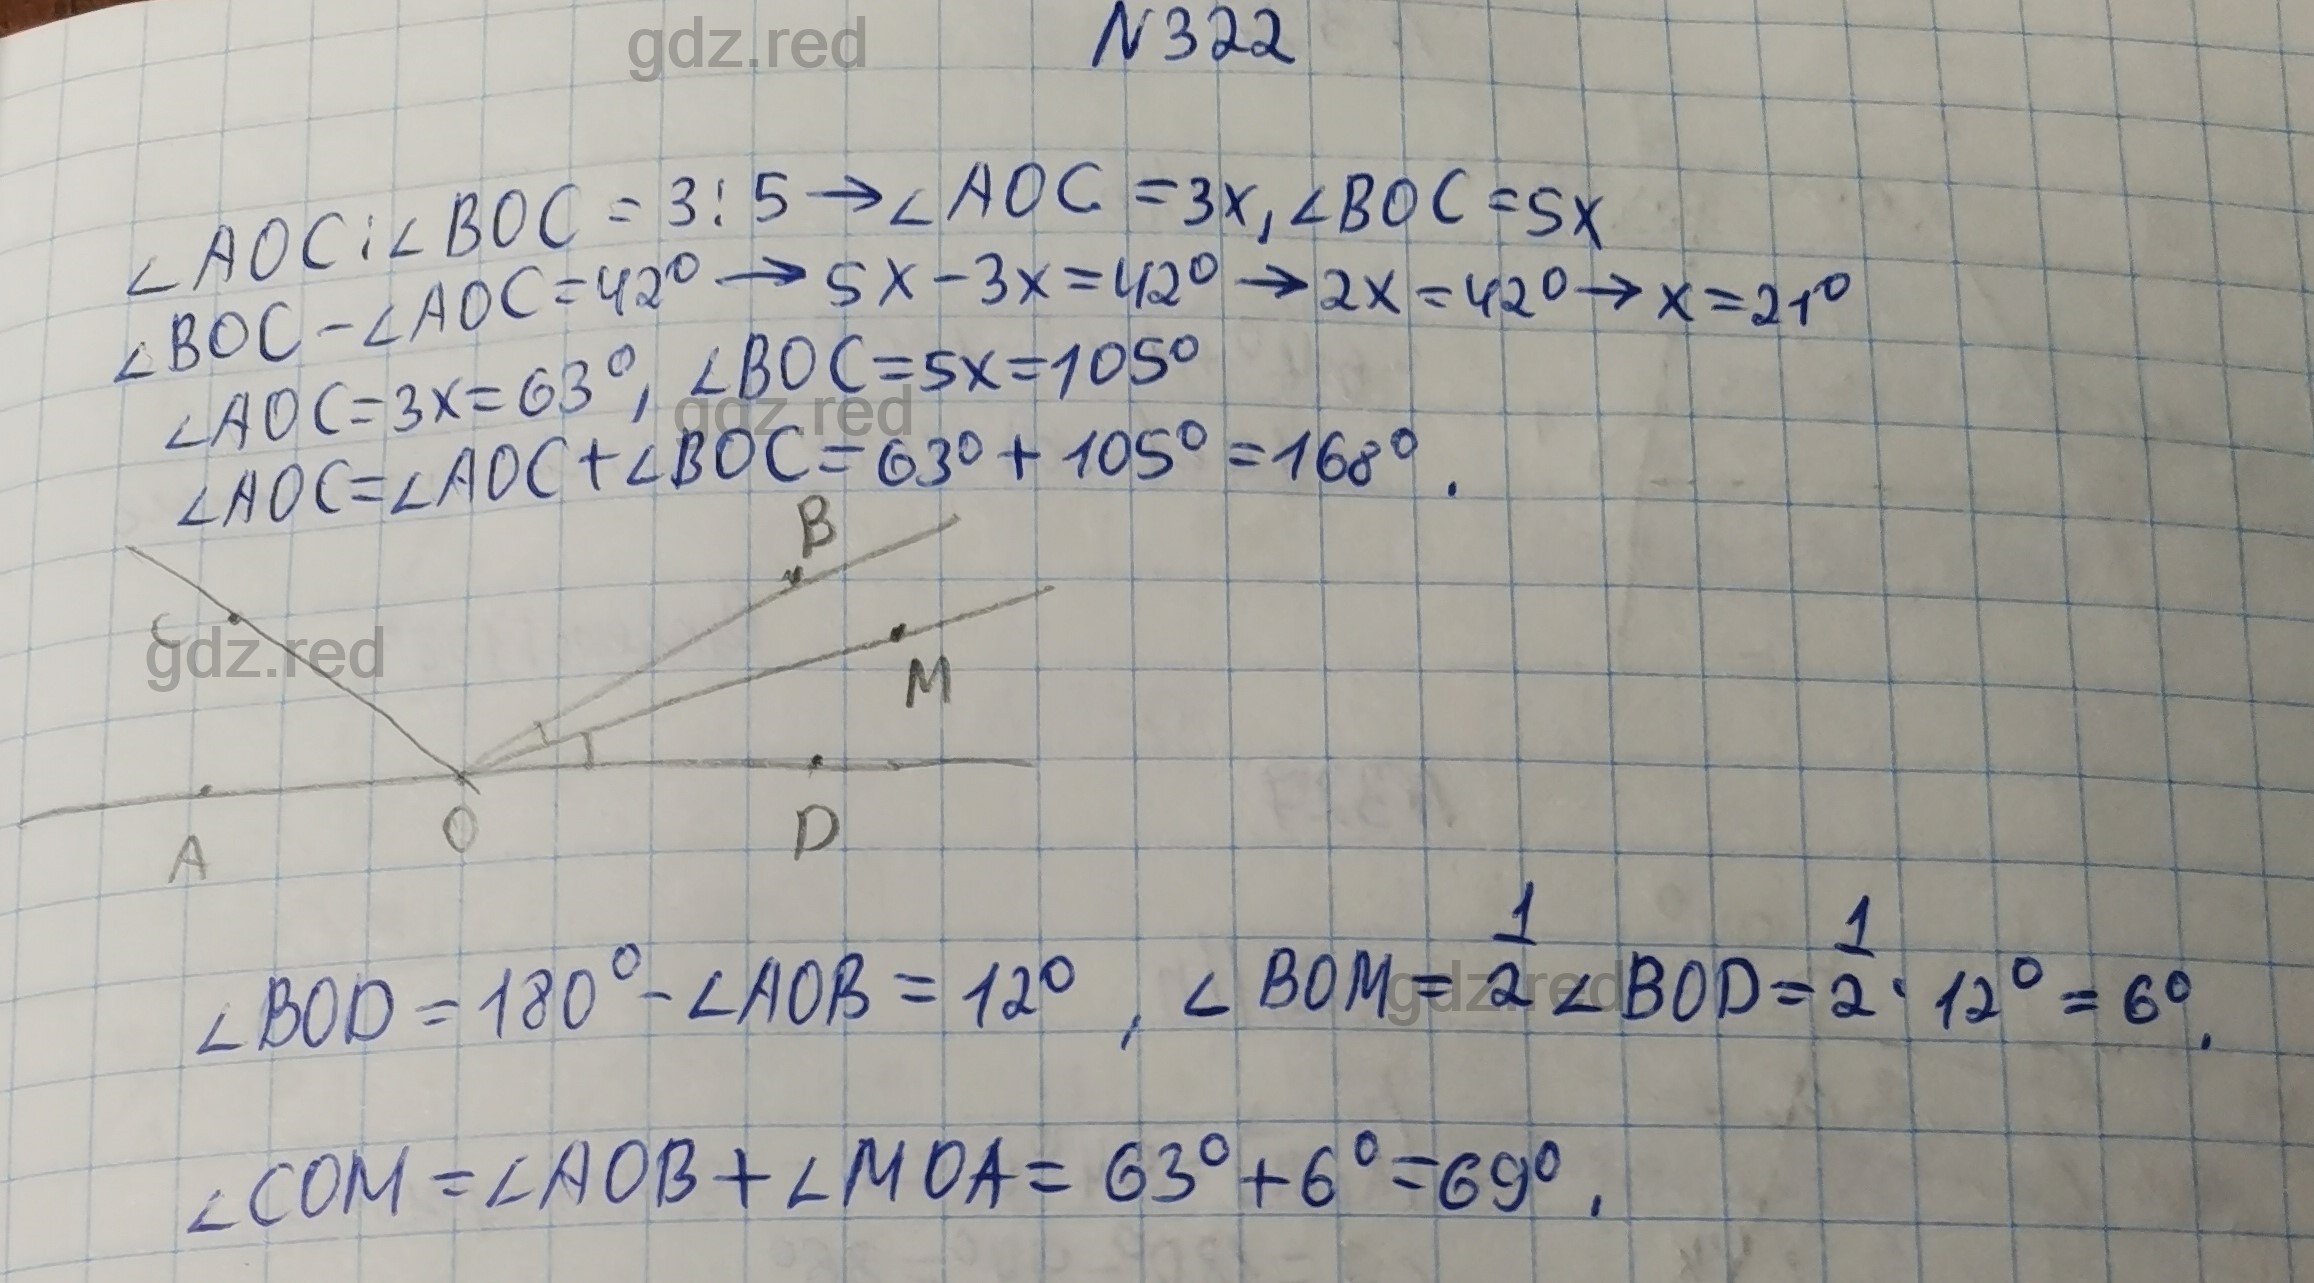 gdz.red
N322
∠AOC:∠BOC = 3:5 → ∠AOC = 3x, ∠BOC = 5x
∠BOC - ∠AOC = 42° → 5x - 3x = 42° → 2x = 42° → x = 21°
∠AOC = 3x = 63°, ∠BOC = 5x = 105°
gdz.red
∠AOC = ∠AOC + ∠BOC = 63° + 105° = 168°.
B
C
gdz.red
M
A
O
D
∠BOD = 180° - ∠AOB = 12°, ∠BOM = 1/2 ∠BOD = 1/2 · 12° = 6°.
gdz.red
∠COM = ∠AOB + ∠MOA = 63° + 6° = 69°.